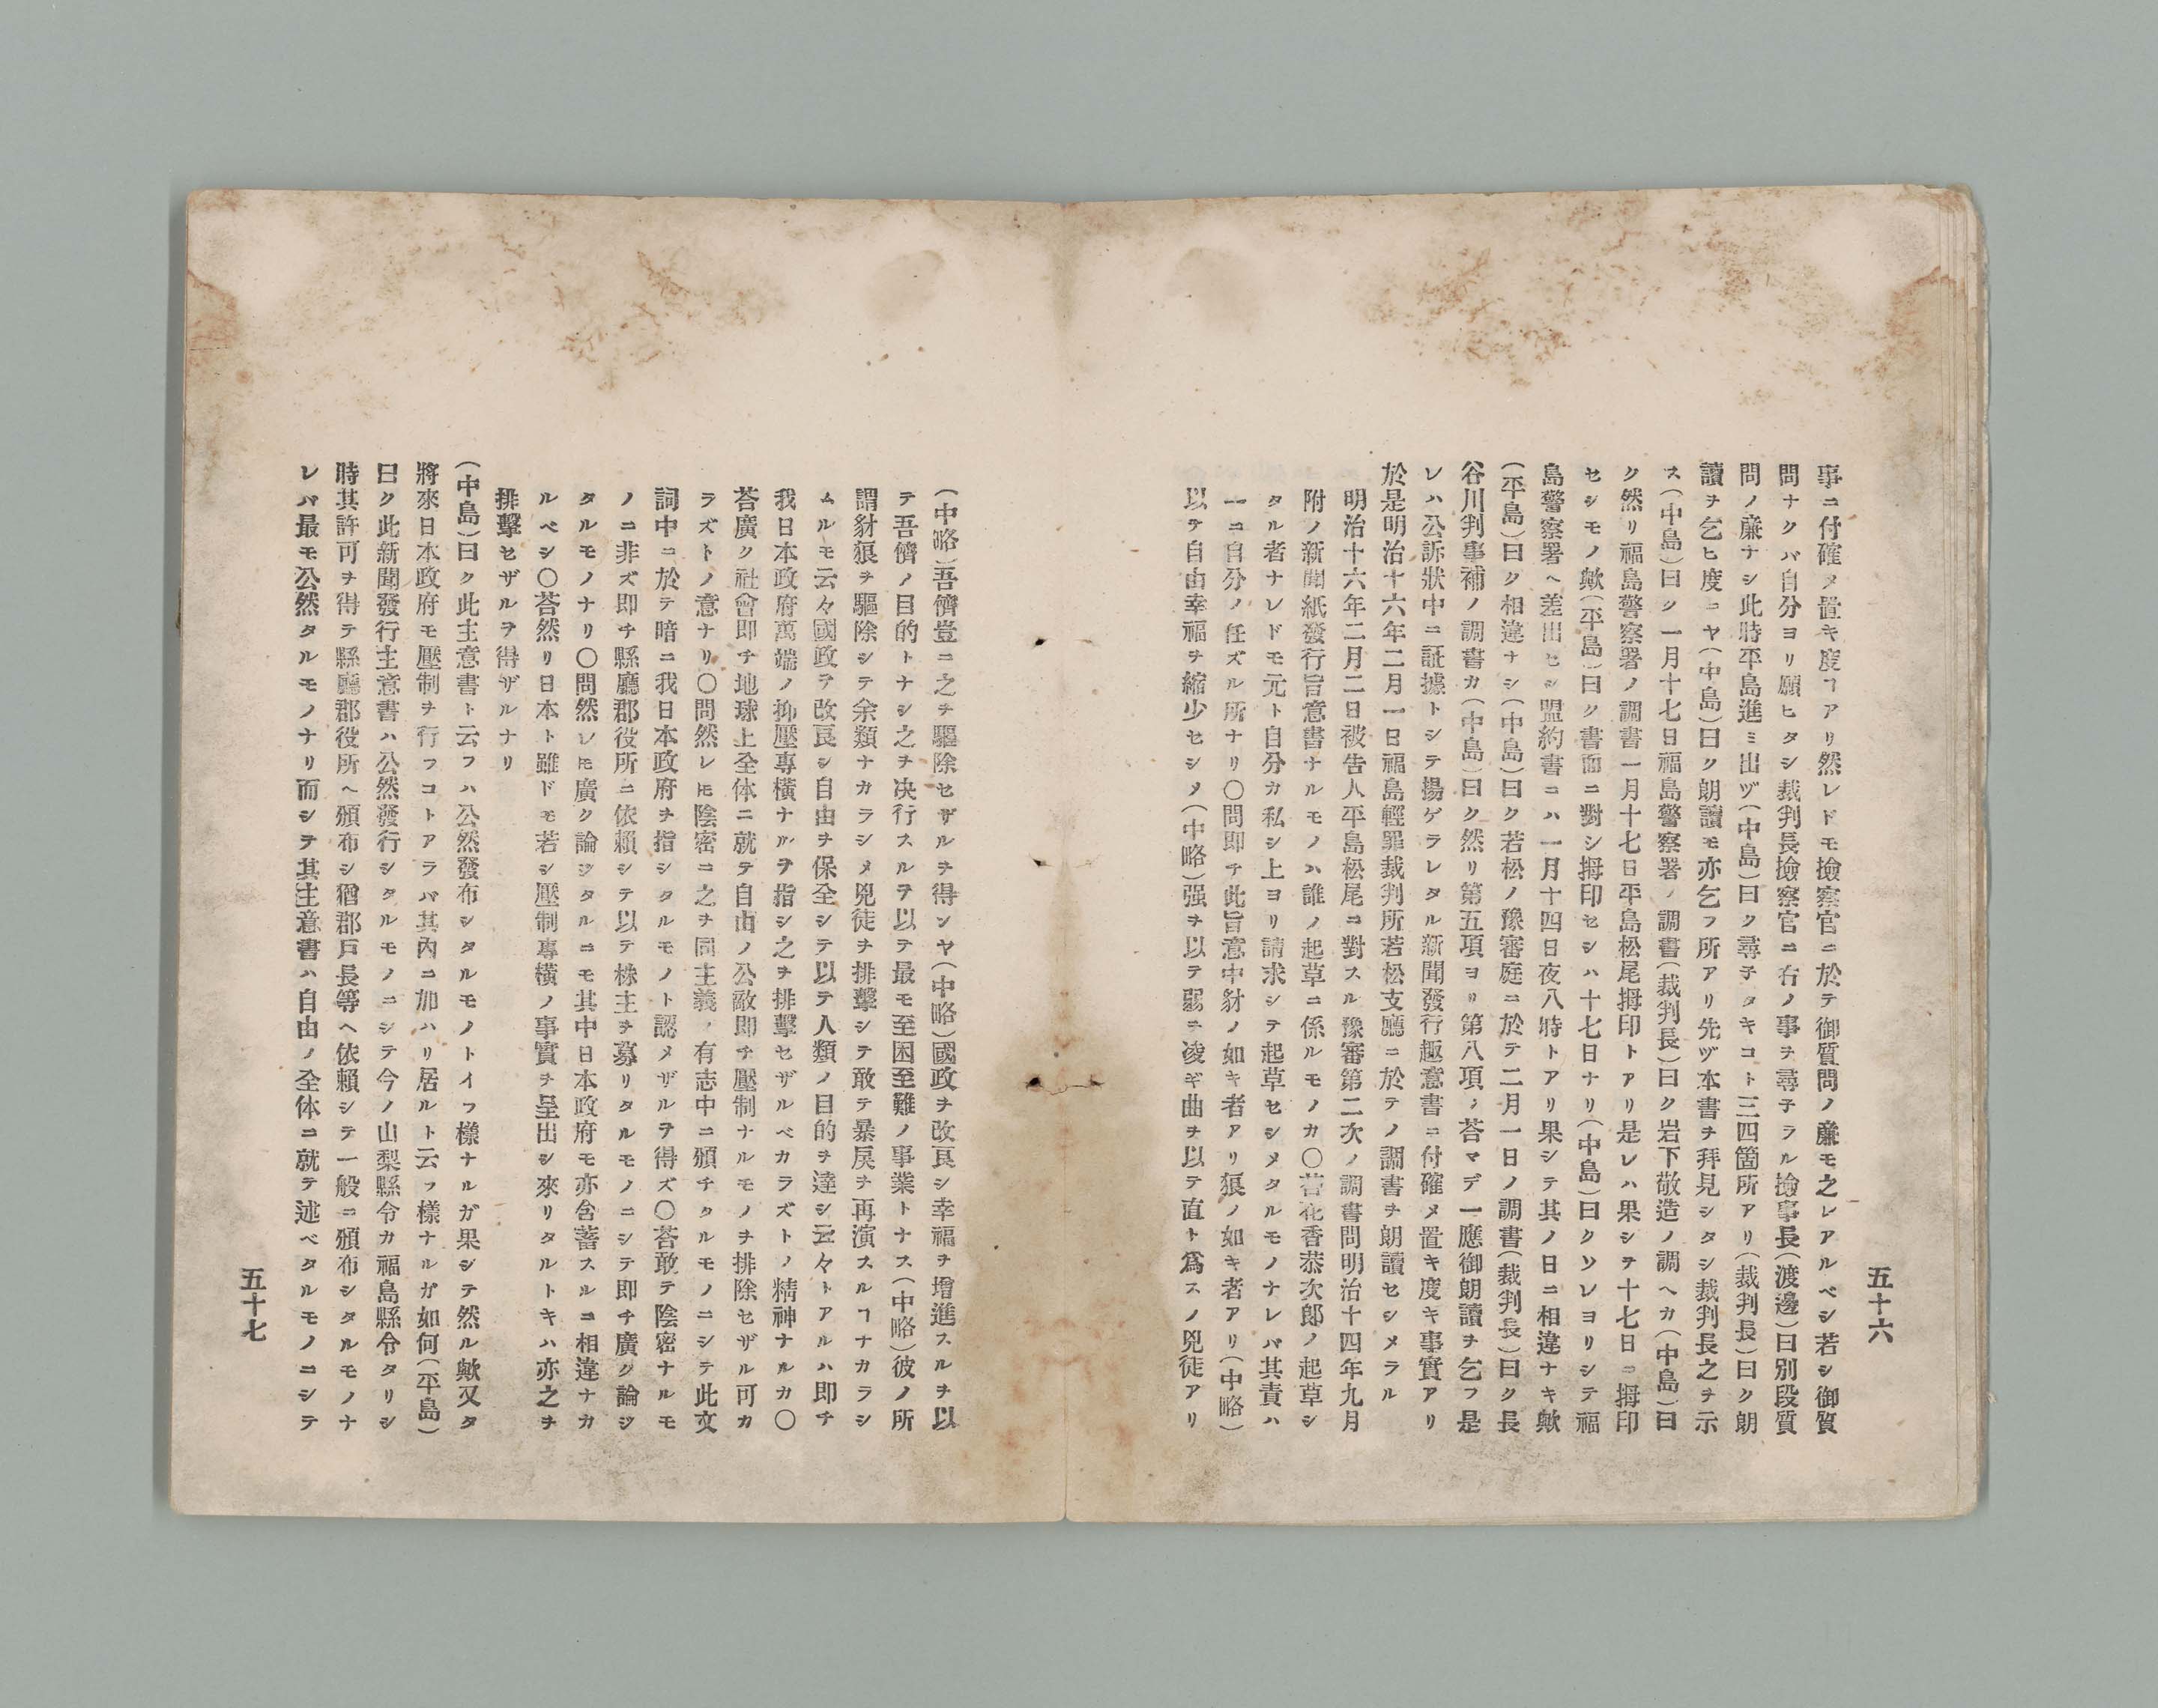 五十六
事ニ付確メ置キ度ヿアリ然レドモ撿察官ニ於テ御質問ノ廉モ之レアルベシ若シ御質
問ナクバ自分ヨリ願ヒタシ裁判長撿察官ニ右ノ事ヲ尋子ラル撿事長(渡邊)曰別段質
問ノ廉ナシ此時平島進ミ出ヅ(中島)曰ク尋子タキコト三四箇所アリ(裁判長)曰ク朗
讀ヲ乞ヒ度ニヤ(中島)曰ク朗讀モ亦乞フ所アリ先ヅ本書ヲ拜見シタシ裁判長之ヲ示
ス(中島)曰ク一月十七日福島警察署ノ調書(裁判長)曰ク岩下敬造ノ調ヘカ(中島)曰
ク然リ福島警察署ノ調書一月十七日平島松尾拇印トアリ是レハ果シテ十七日ニ拇印
セシモノ歟(平島)曰ク書面ニ對シ拇印セシハ十七日ナリ(中島)曰クソレヨリシテ福
島警察署ヘ差出セシ盟約書ニハ一月十四日夜八時トアリ果シテ其ノ日ニ相違ナキ歟
(平島)曰ク相違ナシ(中島)曰ク若松ノ豫審庭ニ於テ二月一日ノ調書(裁判長)曰ク長
谷川判事補ノ調書カ(中島)曰ク然リ第五項ヨリ第八項ノ荅マデ一應御朗讀ヲ乞フ是
レハ公訴狀中ニ証據トシテ揚ゲラレタル新聞發行趣意書ニ付確メ置キ度キ事實アリ
於是明治十六年二月一日福島輕罪裁判所若松支廳ニ於テノ調書ヲ朗讀セシメラル
明治十六年二月二日被告人平島松尾ニ對スル豫審第二次ノ調書問明治十四年九月
附ノ新聞紙發行旨意書ナルモノハ誰ノ起草ニ係ルモノカ〇荅花香恭次郎ノ起草シ
タル者ナレドモ元ト自分カ私シ上ヨリ請求シテ起草セシメタルモノナレバ其責ハ
一ニ自分ノ任ズル所ナリ〇問即チ此旨意中豺ノ如キ者アリ狼ノ如キ者アリ(中略)
以テ自由幸福ヲ縮少セシノ(中略)强ヲ以テ弱ヲ凌ギ曲ヲ以テ直ト爲スノ兇徒アリ
(中略)吾儕豈ニ之ヲ驅除セザルヲ得ンヤ(中略)國政ヲ改良シ幸福ヲ增進スルヲ以
テ吾儕ノ目的トナシ之ヲ决行スルヲ以テ最モ至困至難ノ事業トナス(中略)彼ノ所
謂豺狼ヲ驅除シテ余類ナカラシメ兇徒ヲ排擊シテ敢テ暴戾ヲ再演スルヿナカラシ
ムルモ云々國政ヲ改良シ自由ヲ保全シテ以テ人類ノ目的ヲ達シ云々トアルハ即チ
我日本政府萬端ノ抑壓專橫ナルヲ指シ之ヲ排擊セザルベカラズトノ精神ナルカ〇
荅廣ク社會即チ地球上全体ニ就テ自由ノ公敵即チ壓制ナルモノヲ排除セザル可カ
ラズトノ意ナリ〇問然レ𪜈陰密ニ之ヲ同主義ノ有志中ニ頒チタルモノニシテ此文
詞中ニ於テ暗ニ我日本政府ヲ指シタルモノト認メザルヲ得ズ〇荅敢テ陰密ナルモ
ノニ非ズ即チ縣廳郡役所ニ依賴シテ以テ株主ヲ募リタルモノニシテ即チ廣ク論ジ
タルモノナリ〇問然レ𪜈廣ク論ジタルニモ其中日本政府モ亦含蓄スルニ相違ナカ
ルベシ〇荅然リ日本ト雖ドモ若シ壓制專橫ノ事實ヲ呈出シ來リタルトキハ亦之ヲ
排擊セザルヲ得ザルナリ
(中島)曰ク此主意書ト云フハ公然發布シタルモノトイフ樣ナルガ果シテ然ル歟又タ
將來日本政府モ壓制ヲ行フコトアラバ其內ニ加ハリ居ルト云フ樣ナルガ如何(平島)
曰ク此新聞發行主意書ハ公然發行シタルモノニシテ今ノ山梨縣令カ福島縣令タリシ
時其許可ヲ得テ縣廳郡役所ヘ頒布シ猶郡戶長等ヘ依賴シテ一般ニ頒布シタルモノナ
レバ最モ公然タルモノナリ而シテ其主意書ハ自由ノ全体ニ就テ述ベタルモノニシテ
五十七